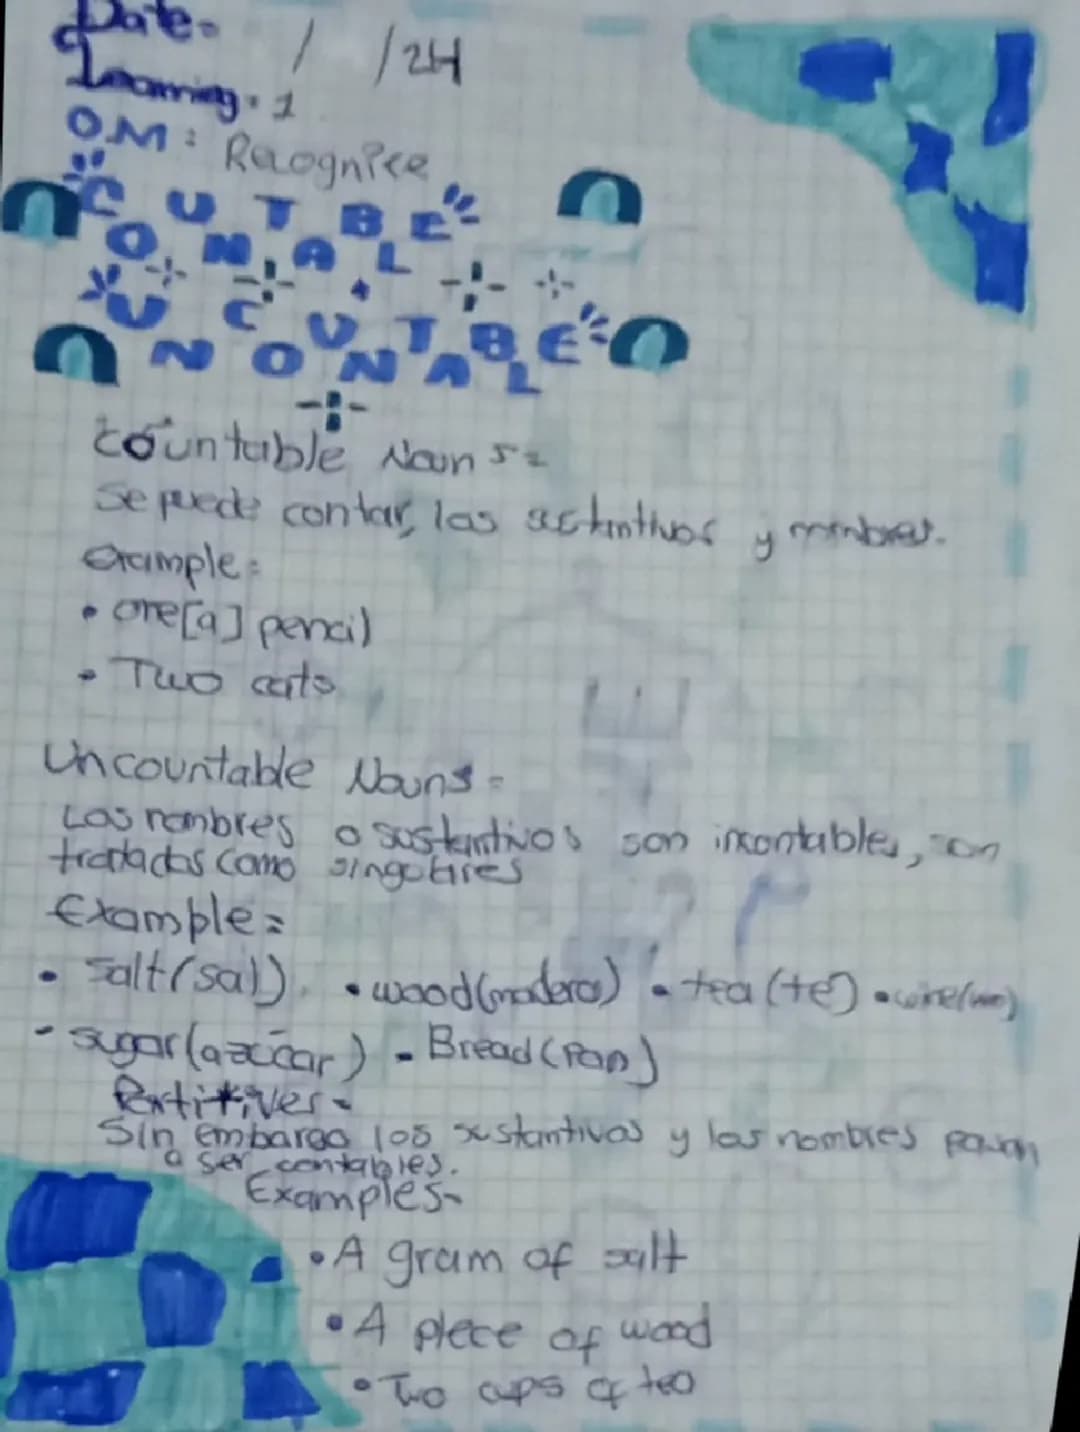 Date-  /  /24
Learning: 1
OM: Recognice
COUNTABLE
UNCOUNTABLE
Countable Nouns=
Se puede contar, los y nombres.
Example:
• one[a] pencil
• Two cats
Uncountable Nouns=
Los nombres o sustantivos son incontables, son
tratados como singulares
Example=
• Salt(sal) • wood(madera) • tea(te) • wine(vino)
- sugar(azúcar) - Bread(Pan)
Partitives-
Sin embargo los sustantivos y los nombres pasan
a ser contables.
Examples-
• A gram of salt
• A piece of wood
• Two cups of tea